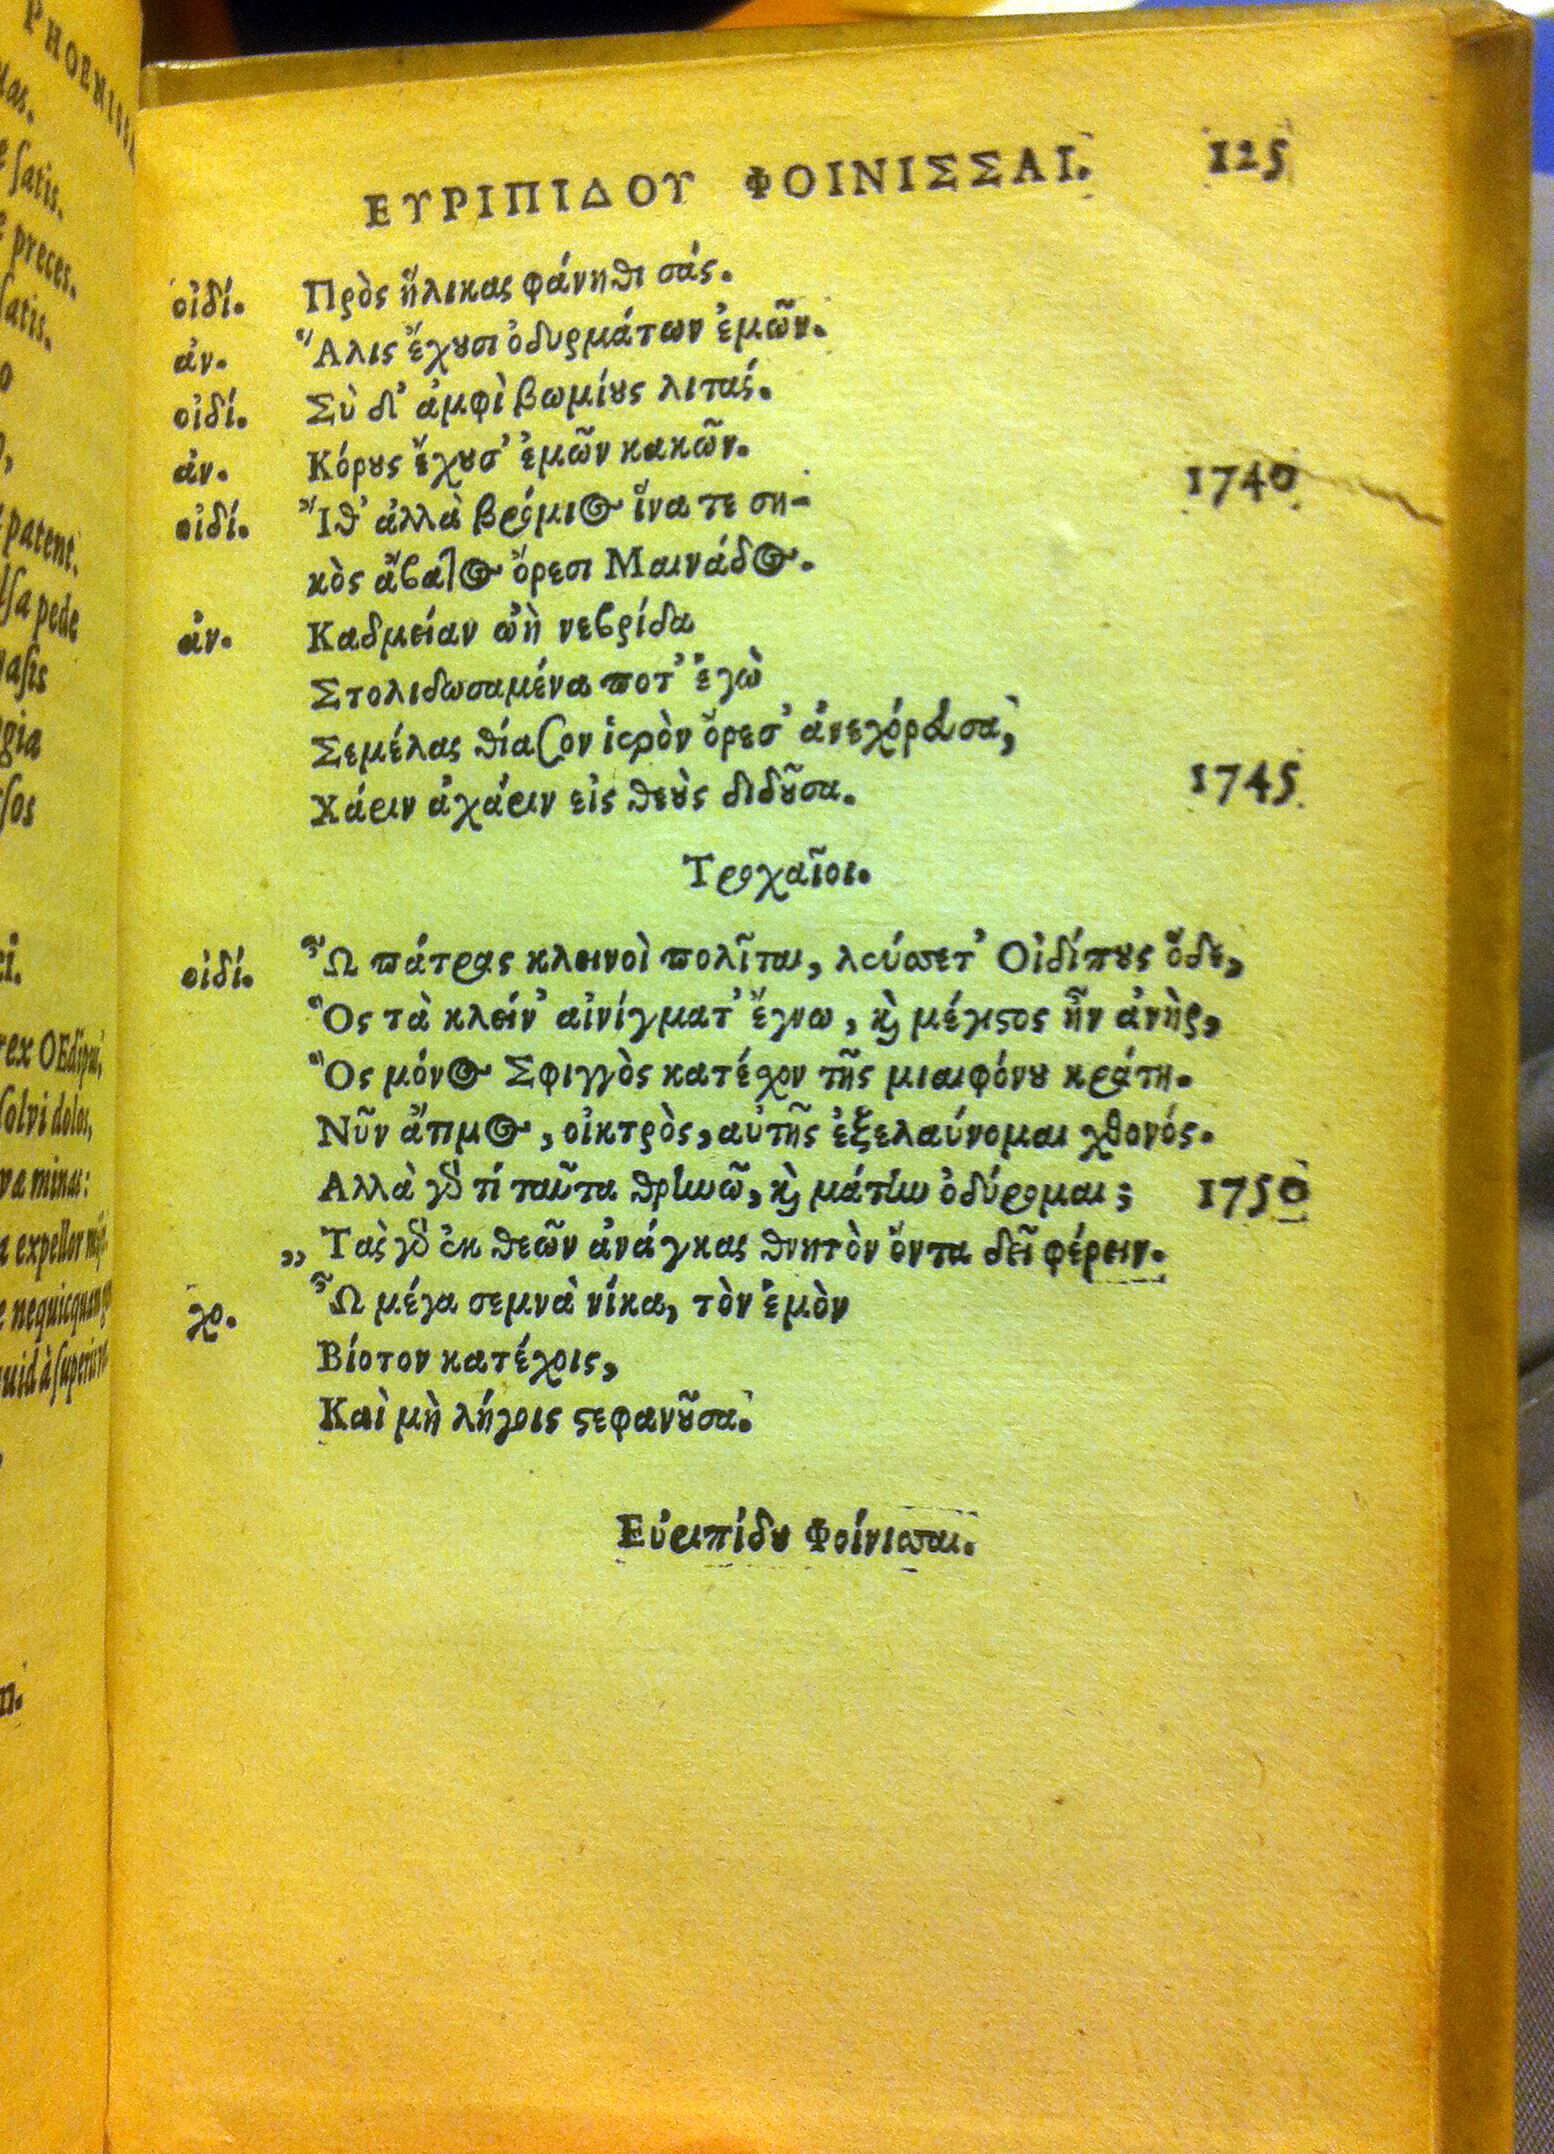 PHOENISSA
ΕΥΡΙΠΙΔΟΥ ΦΟΙΝΙΣΣΑΙ. 125
οἰδί. Πρὸς ἥλικας φάνηθι σάς.
ἀν. Ἅλις ἔχουσι ὀδυρμάτων ἐμῶν.
οἰδί. Σὺ δ' ἀμφὶ βωμίους λιτάς.
ἀν. Κόρους ἔχουσ' ἐμῶν κακῶν. 1740
οἰδί. Ἴθ' ἀλλὰ βρόμιος ἵνα τε ση-
κὸς ἄβατος ὄρεσι Μαινάδος.
ἀν. Καδμείαν ᾧ νεβρίδα
Στολιδωσαμένα ποτ' ἐγὼ
Σεμέλας θίασον ἱερὸν ὄρεσ' ἀνεχόρευσα,
Χάριν ἀχάριν εἰς θεοὺς διδοῦσα. 1745
Τροχαῖοι.
οἰδί. Ὦ πάτρας κλεινοὶ πολῖται, λεύσσετ' Οἰδίπους ὅδε,
Ὃς τὰ κλείν' αἰνίγματ' ἔγνω, καὶ μέγιστος ἦν ἀνὴρ,
Ὃς μόνος Σφιγγὸς κατέχον τῆς μιαιφόνου κράτη.
Νῦν ἄτιμος, οἰκτρὸς, αὐτῆς ἐξελαύνομαι χθονός.
Αλλὰ γὰρ τί ταῦτα θρηνῶ, καὶ μάτην ὀδύρομαι; 1750
„ Τὰς γὰρ ἐκ θεῶν ἀνάγκας θνητὸν ὄντα δεῖ φέρειν.
χο. Ὦ μέγα σεμνὰ νίκα, τὸν ἐμὸν
Βίοτον κατέχοις,
Καὶ μὴ λήγοις στεφανοῦσα.
Εὐριπίδου Φοίνισσαι.
satis.
preces.
satis.
patent.
pede
rex OEdipus,
solvi dolos,
minas:
expellor
nequicquam